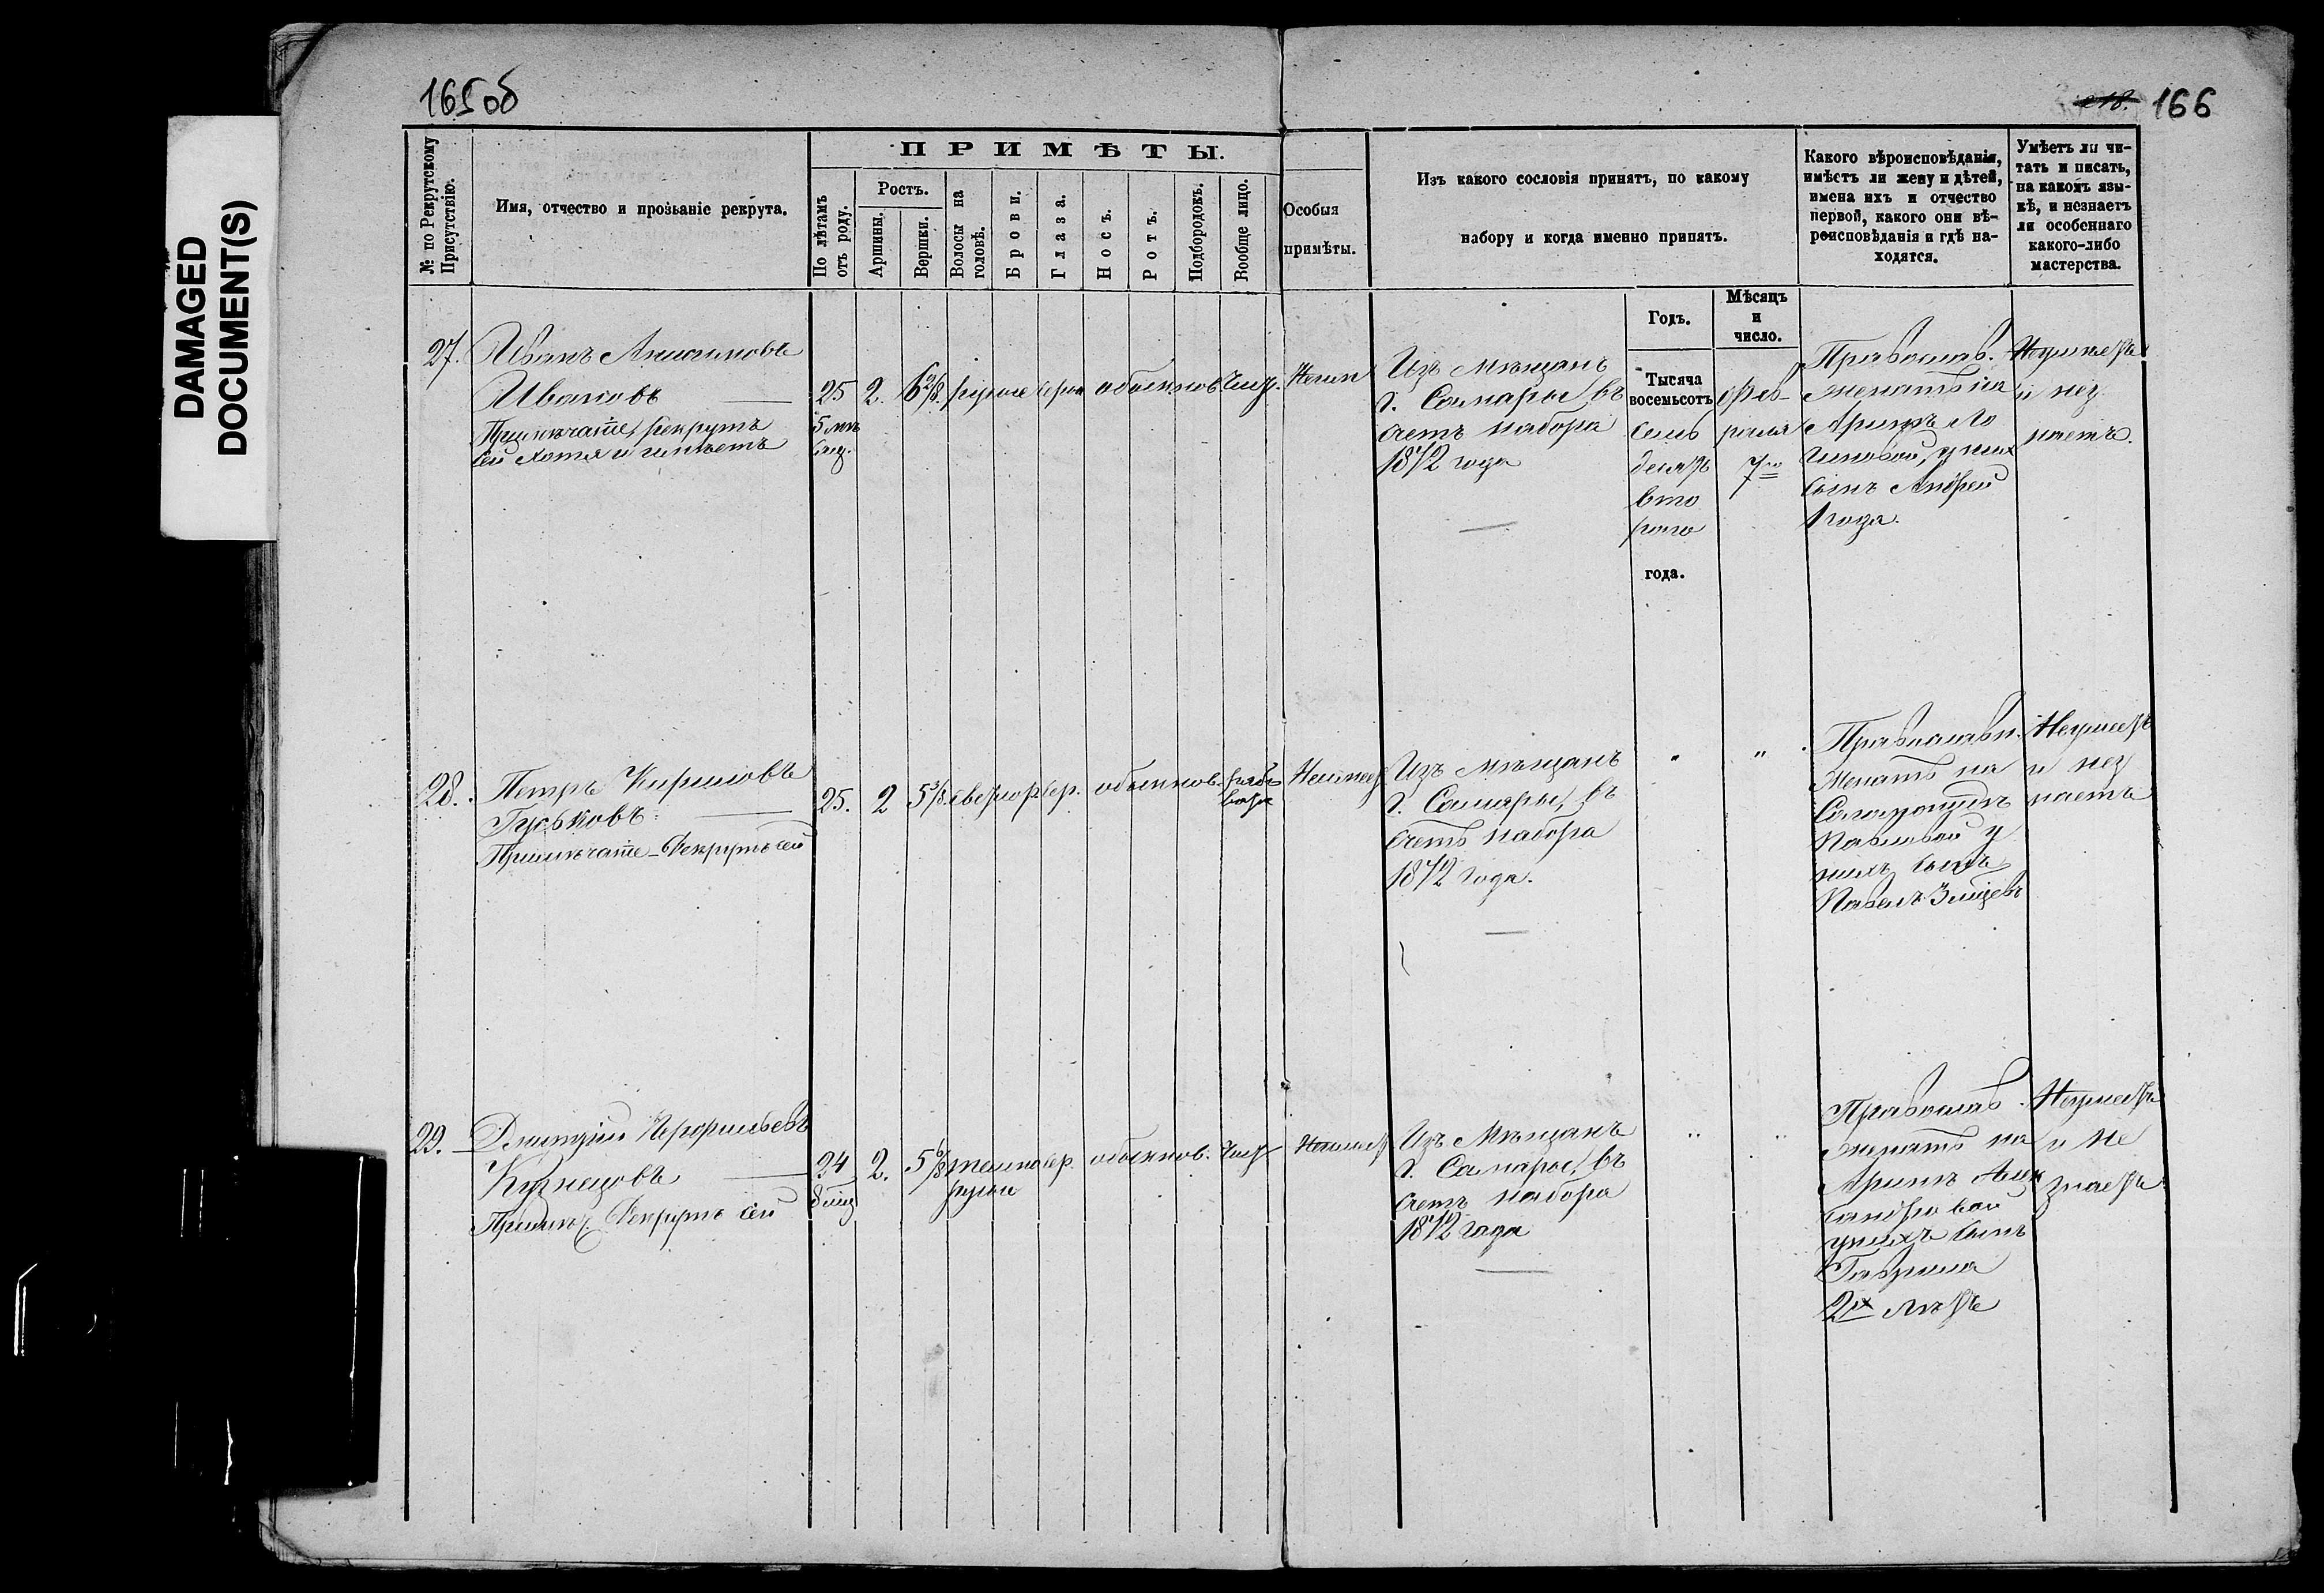 165 об
218. 166
DAMAGED
DOCUMENT(S)
№ по Рекрутскому
Присутствію.
Имя, отчество и прозьаніе рекрута.
ПРИМѢТЫ.
По лѣтамъ
отъ роду.
Ростъ.
Аршины.
Вершки.
Волосы на
головѣ.
Брови.
Глаза.
Носъ.
Ротъ.
Подбородокъ.
Вообще лицо.
Особыя
примѣты.
Изъ какого сословія принятъ, по какому
набору и когда именно принятъ.
Какого вѣроисповѣданія,
имѣетъ ли жену и дѣтей,
имена ихъ и отчество
первой, какого они вѣ-
роисповѣданія и гдѣ на-
ходятся.
Умѣетъ ли чи-
тать и писать,
на какомъ язы-
кѣ, и незнаетъ
ли особеннаго
какого-либо
мастерства.
Годъ.
Мѣсяцъ
и
число.
27. Иванъ Анисимовъ
Ивановъ
Примѣчаніе, рекрутъ
сей хотя и имѣетъ
25
2. 6 2/8 русые обыкнов. чист.
Неим
Изъ мѣщанъ
г. Самары, въ
счетъ набора
1872 года
Тысяча
восемьсотъ
семь
десятъ
вто
раго
года.
Фев-
раля
7го
Православ.
женатъ на
Аринѣ Ло
гиновой, у них
сынъ Андрей
1 года.
Неумѣетъ
и нез
наетъ.
28. Петръ Кириловъ
Гуськовъ
Примѣчаніе - Рекрутъ сей
25. 2 сер. обыкнов.
Неимеет
Изъ мѣщанъ
г. Самары, въ
счетъ набора
1872 года.
" "
Православн.
женатъ на
Павловой у
нихъ сынъ
Павелъ
Неумѣетъ
и нез
наетъ
29. Дмитрій
Кузнецовъ
Примѣч. Рекрутъ сей
24
8 мѣс
2. 5 6/8 темно сер. обыкнов. чист
русые
Неимеет
Изъ мѣщанъ
г. Самары, въ
счетъ набора
1872 года
" "
Православ.
женатъ на
Аринѣ Алек
сандровой
у нихъ сынъ
Гаврила
2х лѣтъ
Неумеетъ
и не
знаетъ